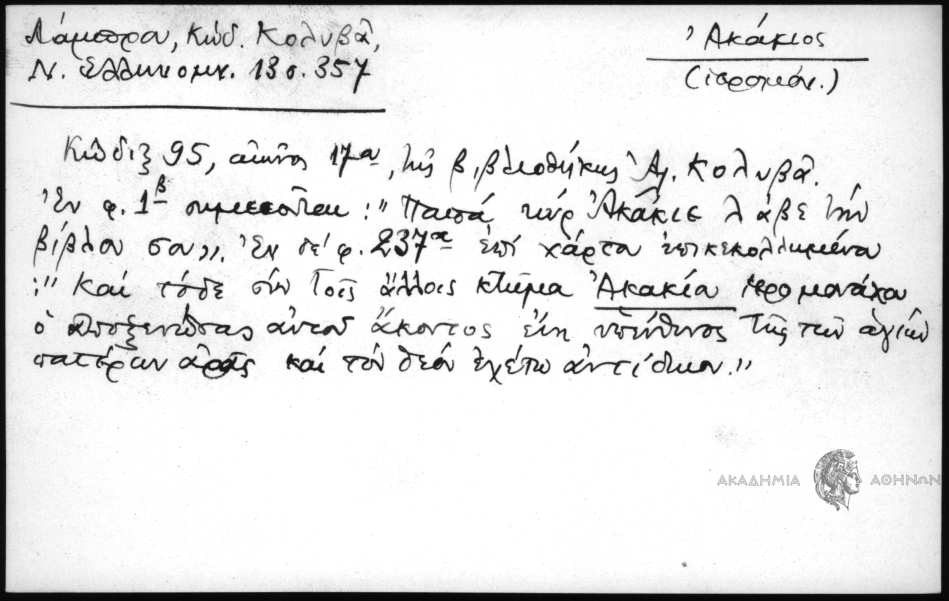 Λάμπρου, Κώδ. Κολυβᾶ,
Ν. Ἑλληνομν. 13 σ. 357
Ἀκάκιος
(ἱερομόν.)
Κῶδιξ 95, αἰῶνος 17ου, τῆς βιβλιοθήκης Ἀλ. Κολυβᾶ.
Ἐν φ. 1β σημειοῦται: "Παπά κύρ Ἀκάκιε λάβε τήν
βίβλον σου„. Ἐν δέ φ. 237α ἐπί χάρτου ἐπικεκολλημένου
:" Καί τόδε σύν τοῖς ἄλλοις κτῆμα Ἀκακίου ἱερομονάχου
ὁ ἀποξενώσας αὐτοῦ ἄκοντος εἴη ὑπεύθυνος τῆς τῶν ἁγίων
πατέρων ἀρᾶς καί τόν θεόν ἐχέτω ἀντίδικον."
ΑΚΑΔΗΜΙΑ ΑΘΗΝΩΝ